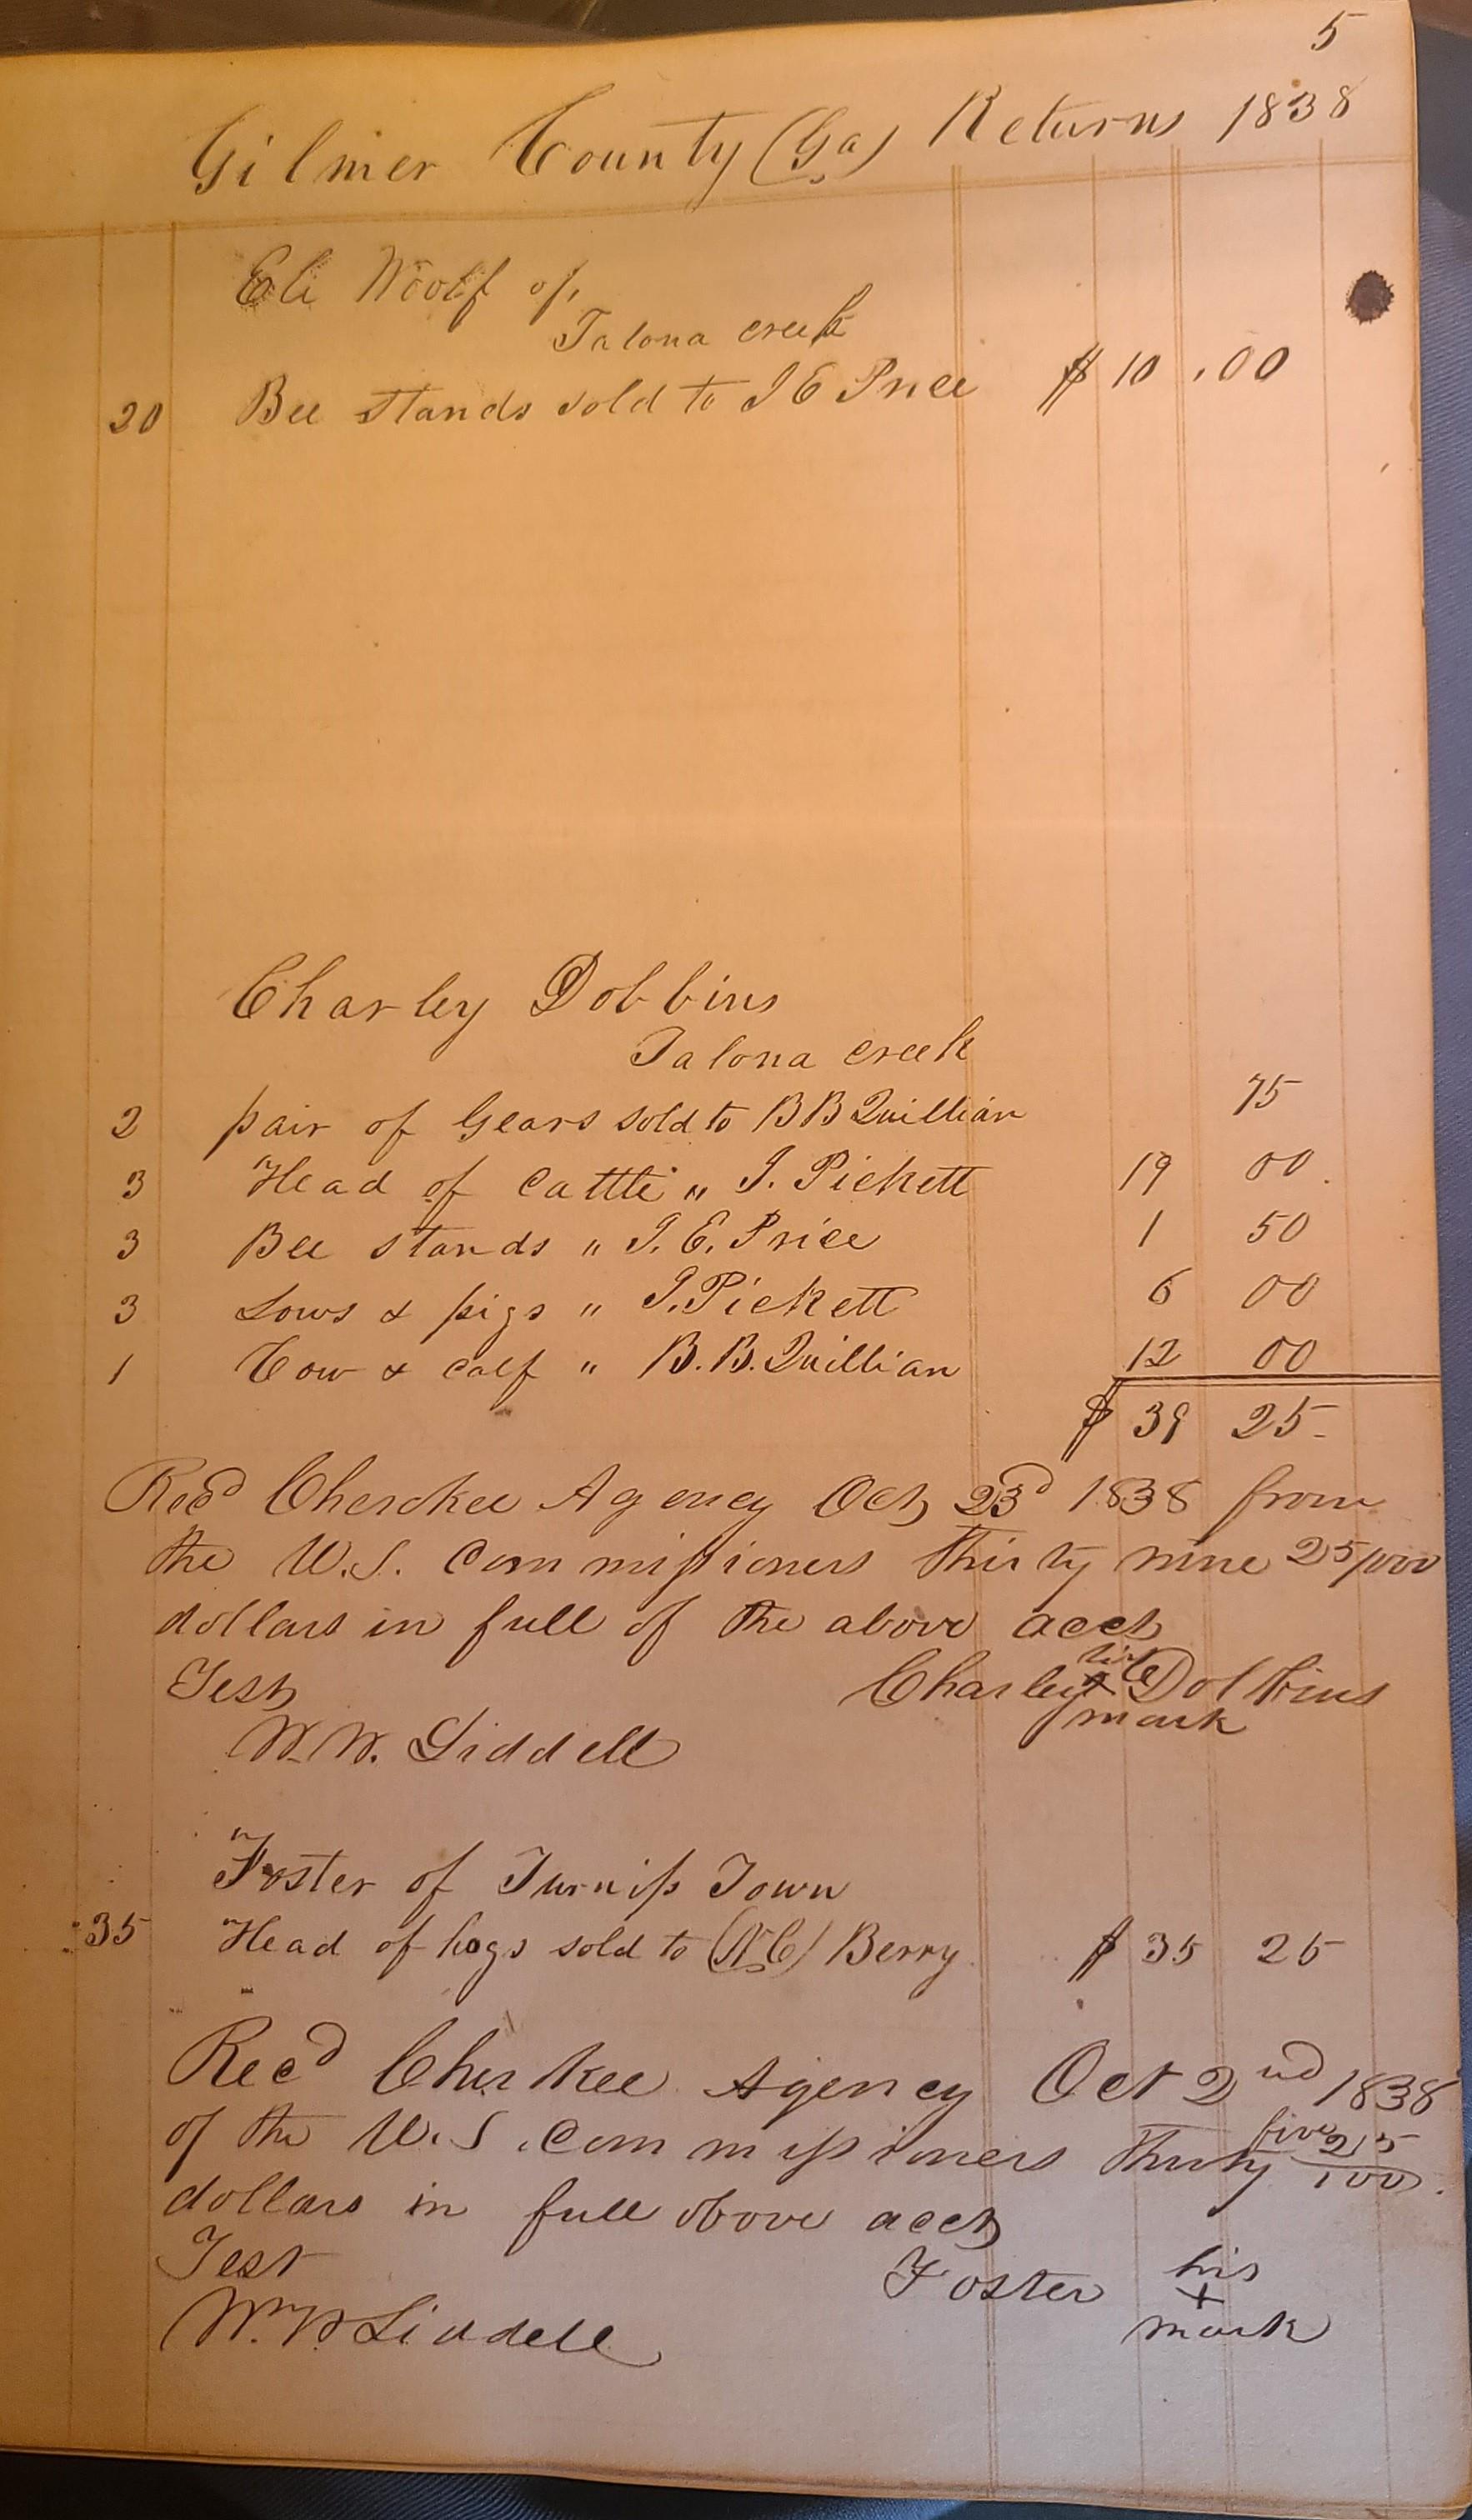 5
Gilmer County (Ga) Returns 1838
Eli Woolf of,
Talona creek
20 Bee stands sold to J E Price $ 10 .00
Charley Dobbins
Talona creek
2 pair of Gears sold to B B Quillian 75
3 Head of Cattle " J. Pickett 19 00
3 Bee stands " J. E. Price 1 50
3 Sows & pigs " J. Pickett 6 00
1 Cow & calf " B. B. Quillian 12 00
$ 39 25
Recd Cherokee Agency Oct 23d 1838 from
the U.S. Commissioners thirty nine 25/100
dollars in full of the above acct
his
Test Charley x Dobbins
mark
W. W. Liddell
Foster of Turnip Town
35 Head of hogs sold to (N C) Berry $ 35 25
Recd Cherkee Agency Oct 2nd 1838
of the U.S. Commissioners Thirty five 25/100
dollars in full above acct
Test Foster his
x
mark
W. W Liddell